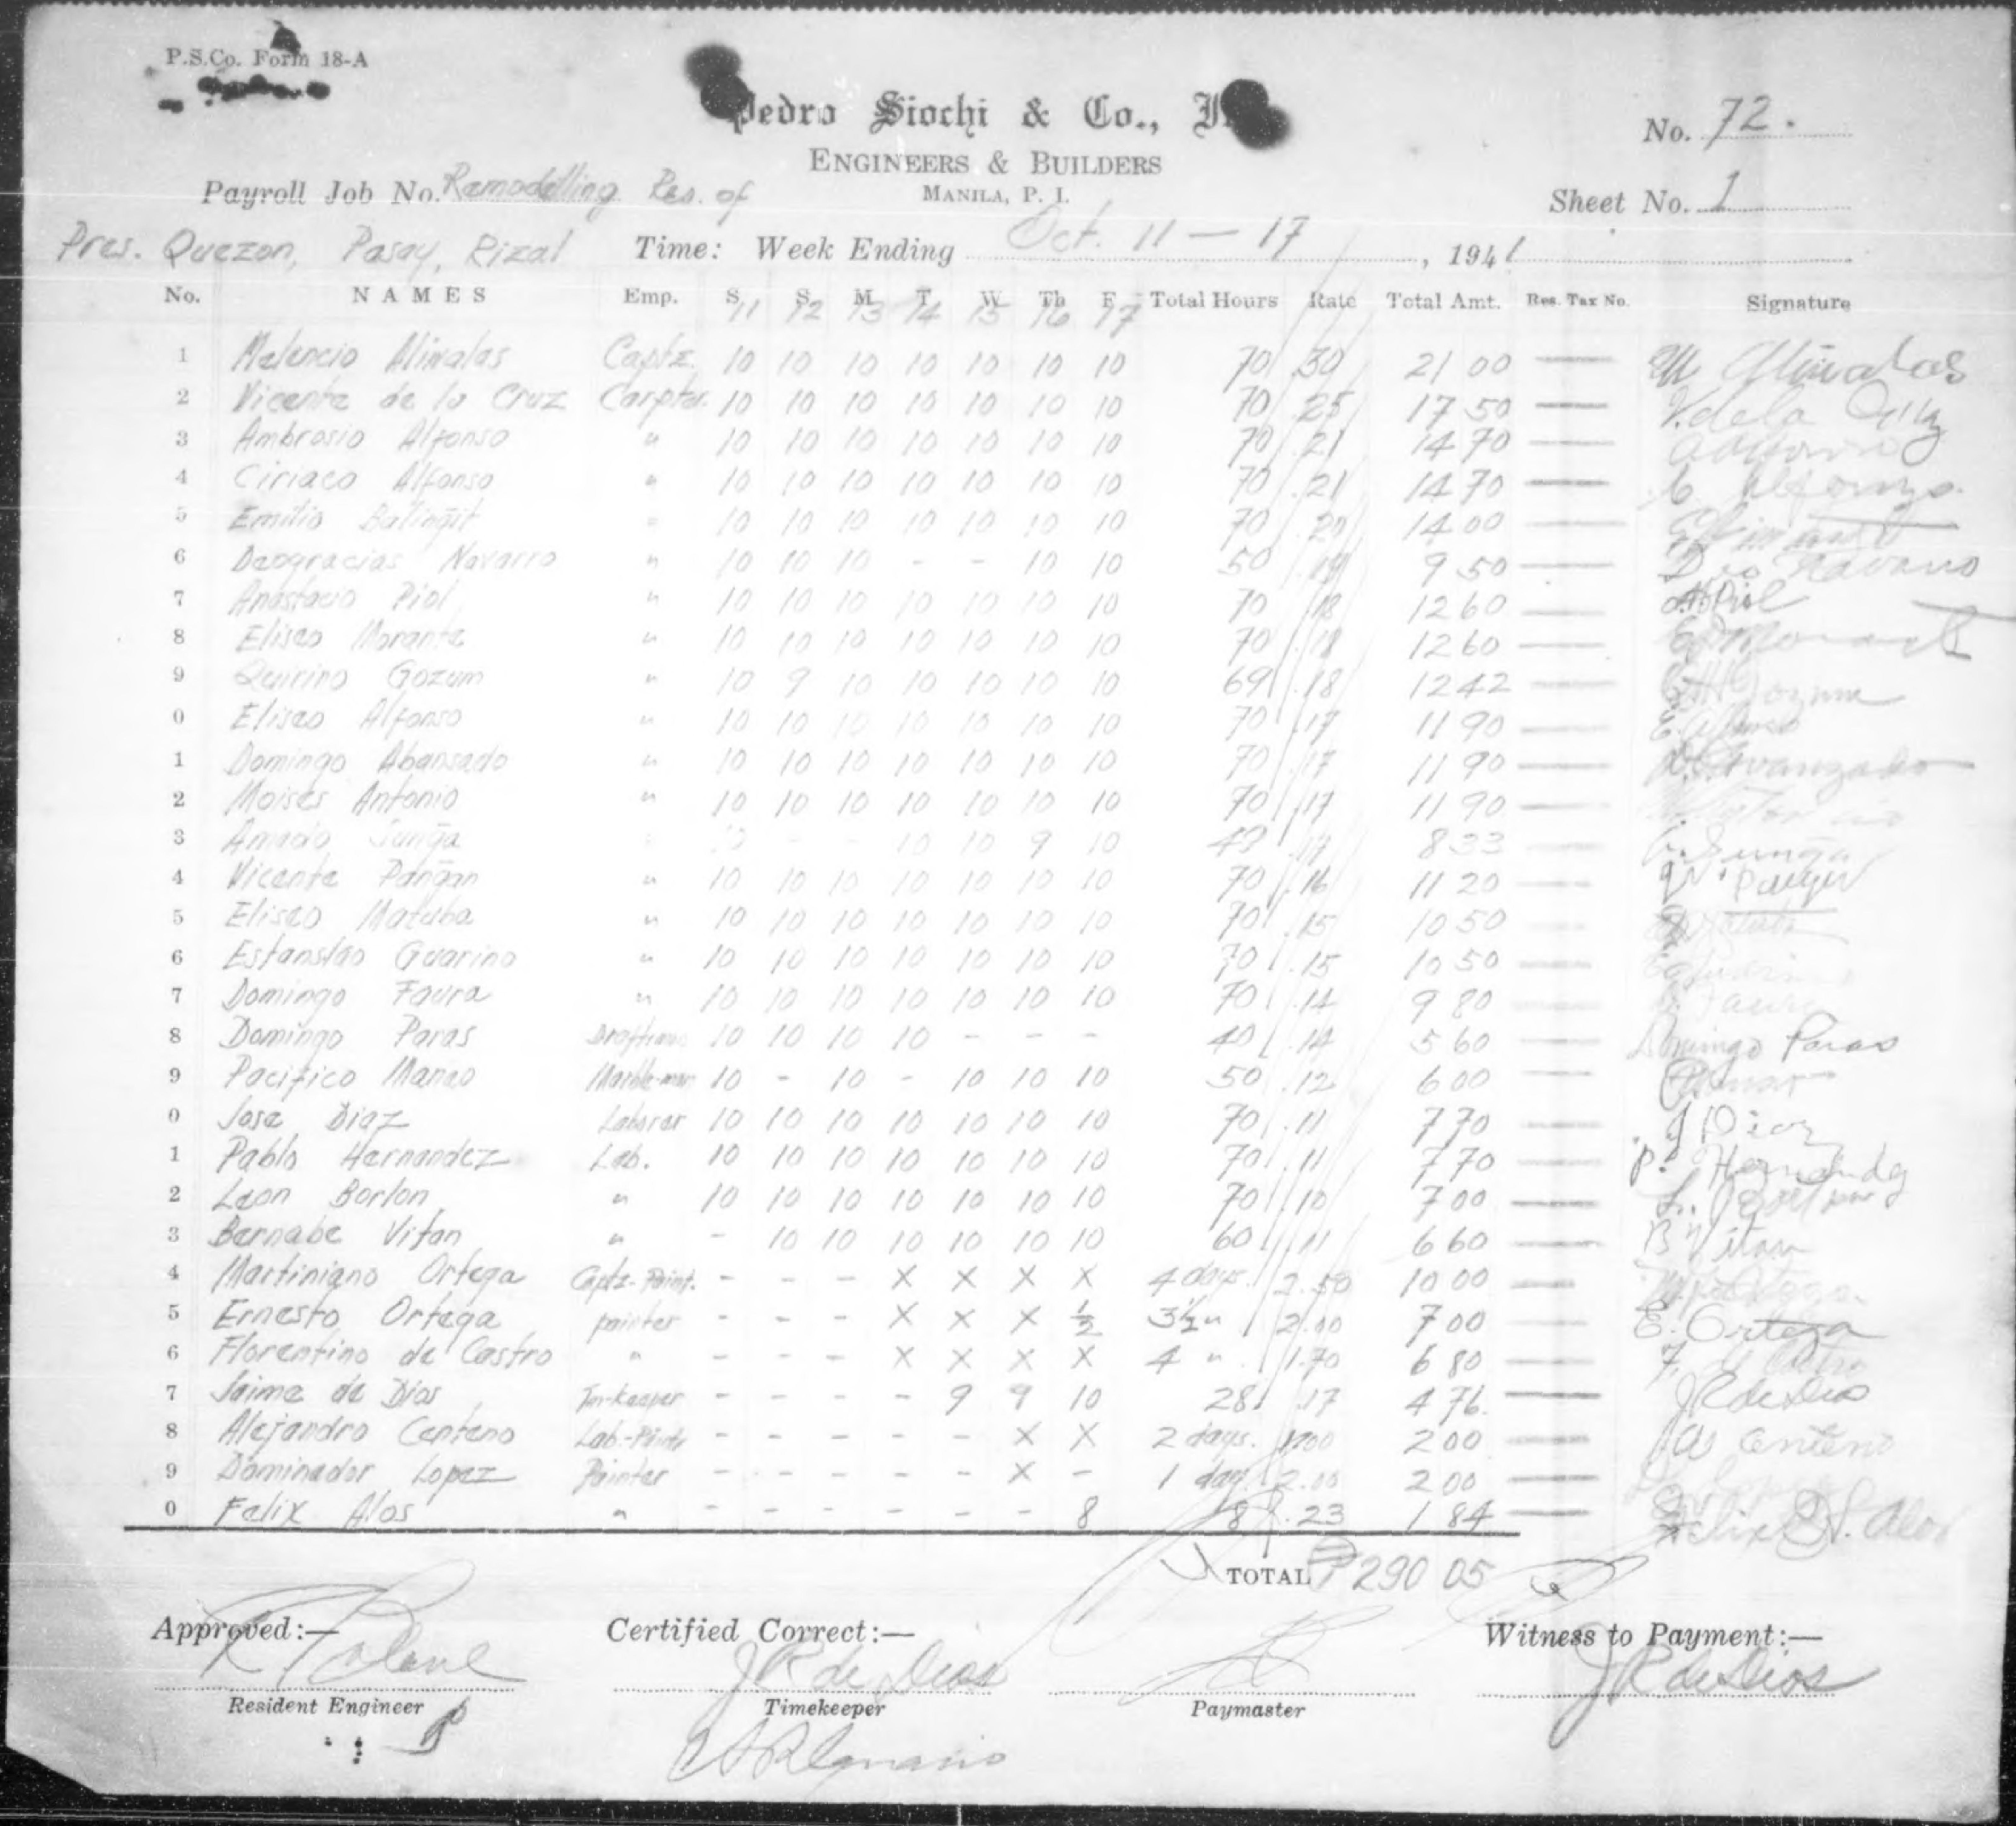 P.S.Co. Form 18-A
Pedro Siochi & Co.,
No. 72.
ENGINEERS & BUILDERS
Payroll Job No. Remodelling Res. of
MANILA, P. I.
Sheet No. 1
Pres. Quezon, Pasay, Rizal Time: Week Ending Oct. 11 — 17, 1941
No. NAMES Emp. S S M T W Th F Total Hours Rate Total Amt. Res. Tax No. Signature
11 12 13 14 15 16 17
1 Melencio Alinalas Captz. 10 10 10 10 10 10 10 70 .30 21 00 —
2 Vicente de la Cruz Carpter. 10 10 10 10 10 10 10 70 .25 17 50 — V. de la Cruz
3 Ambrosio Alfonso " 10 10 10 10 10 10 10 70 .21 14 70 —
4 Ciriaco Alfonso " 10 10 10 10 10 10 10 70 .21 14 70 — C. Alfonso
5 Emilio Balingit " 10 10 10 10 10 10 10 70 .20 14 00 —
6 Deogracias Navarro " 10 10 10 - - 10 10 50 .19 9 50 — Deo Navarro
7 Anastacio Piol " 10 10 10 10 10 10 10 70 .18 12 60 — A. Piol
8 Eliseo Morante " 10 10 10 10 10 10 10 70 .18 12 60 —
9 Quirino Gozum " 10 9 10 10 10 10 10 69 .18 12 42 — Gozum
0 Eliseo Alfonso " 10 10 10 10 10 10 10 70 .17 11 90 — E. Alfonso
1 Domingo Abansado " 10 10 10 10 10 10 10 70 .17 11 90 — D. Avanzado
2 Moises Antonio " 10 10 10 10 10 10 10 70 .17 11 90 —
3 Amado Sunga " 10 - - 10 10 9 10 49 .17 8 33 — A. Sunga
4 Vicente Pangan " 10 10 10 10 10 10 10 70 .16 11 20 —
5 Eliseo Matuba " 10 10 10 10 10 10 10 70 .15 10 50 —
6 Estanslao Guarino " 10 10 10 10 10 10 10 70 .15 10 50 —
7 Domingo Faura " 10 10 10 10 10 10 10 70 .14 9 80 —
8 Domingo Paras 10 10 10 10 - - - 40 .14 5 60 — Domingo Paras
9 Pacifico Manao Marble-man 10 - 10 - 10 10 10 50 .12 6 00 —
0 Jose Diaz Laborer 10 10 10 10 10 10 10 70 .11 7 70 — J Diaz
1 Pablo Hernandez Lab. 10 10 10 10 10 10 10 70 .11 7 70 — P. Hernandez
2 Leon Borlon " 10 10 10 10 10 10 10 70 .10 7 00 —
3 Bernabe Vitan " - 10 10 10 10 10 10 60 .11 6 60 — B Vitan
4 Martiniano Ortega Captz-Paint. - - - X X X X 4 days. 2.50 10 00 —
5 Ernesto Ortega painter - - - X X X ½ 3½ " 2.00 7 00 — E. Ortega
6 Florentino de Castro " - - - X X X X 4 " 1.70 6 80 —
7 Jaime de Dios Tm-keeper - - - - 9 9 10 28 .17 4 76. — J R de Dios
8 Alejandro Centeno - - - - - X X 2 days. 1.00 2 00 — A Centeno
9 Dominador Lopez Painter - - - - - X - 1 day 2.00 2 00 —
0 Felix Alos " - - - - - - 8 8 .23 1 84 — Felix Alos
TOTAL ₱ 290 05
Approved:— Certified Correct:— Witness to Payment:—
J R de Dios J R de Dios
Resident Engineer Timekeeper Paymaster